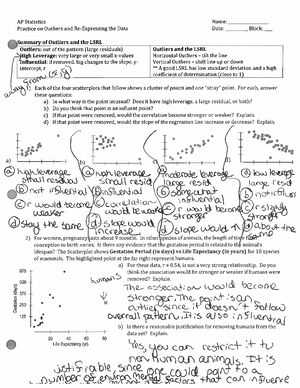 AP Statistics
Name:
Practice on Outliers and Re-Expressing the Data
Date: Block:
Summary of Outliers and the LSRL
Outliers: out of the pattern (large residuals)
High Leverage: very large or very small x-values
Influential: if removed, big changes to the slope, y-intercept, r
Outliers and the LSRL
Horizontal Outliers – tilt the line
Vertical Outliers – shift line up or down
** A good LSRL has low standard deviation and a high coefficient of determination (close to 1)
away from
1) Each of the four scatterplots that follow shows a cluster of points and one "stray" point. For each, answer these questions:
a) In what way is the point unusual? Does it have high leverage, a large residual, or both?
b) Do you think that point is an influential point?
c) If that point were removed, would the correlation become stronger or weaker? Explain.
d) If that point were removed, would the slope of the regression line increase or decrease? Explain.
a) high leverage small residual
b) not influential
c) r would become weaker
d) stay the same
a) high leverage small resid
b) influential
c) correlation would be weaker
d) slope would increase
a) moderate leverage large resid
b) somewhat influential
c) r would become stronger
d) slope would
a) low leverage large resid
b) not influential
c) r slightly stronger
d) about the same
2) For women, pregnancy lasts about 9 months. In other species of animals, the length of time from conception to birth varies. Is there any evidence that the gestation period is related to the animal's lifespan? The Scatterplot shows Gestation Period (in days) vs Life Expectancy (in years) for 18 species of mammals. The highlighted point at the far right represents humans.
humans
Gestation (days)
Life Expectancy (yr)
a) For these data, r = 0.54, is not a very strong relationship. Do you think the association would be stronger or weaker if humans were removed? Explain.
The association would become
stronger. The point is an
outlier since it doesn't follow
overall pattern. It is also influential
b) Is there a reasonable justification for removing humans from the data set? Explain.
Yes, you can restrict it to
non human animals. It is
justifiable, since one could point to a
number of environmental factors that can influence